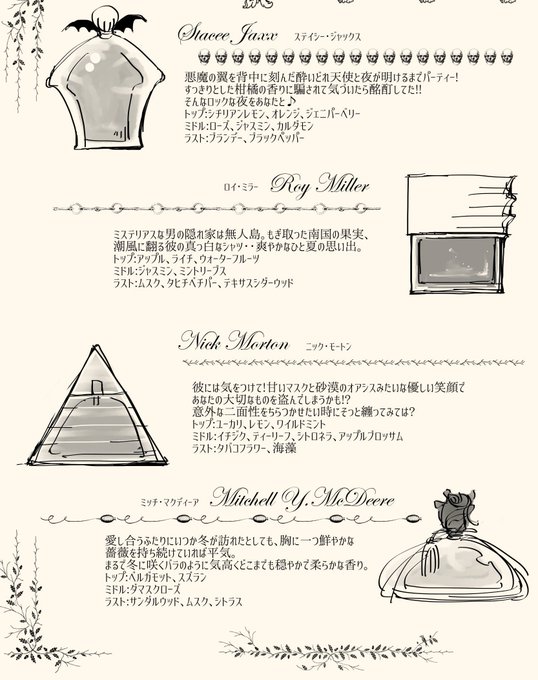 Stacee Jaxx ステイシー・ジャックス
悪魔の翼を背中に刻んだ酔いどれ天使と夜が明けるまでパーティー!
すっきりとした柑橘の香りに騙されて気づいたら酩酊してた!!
そんなロックな夜をあなたと♪
トップ:シチリアンレモン、オレンジ、ジェニパーベリー
ミドル:ローズ、ジャスミン、カルダモン
ラスト:ブランデー、ブラックペッパー
ロイ・ミラー Roy Miller
ミステリアスな男の隠れ家は無人島。もぎ取った南国の果実、
潮風に翻る彼の真っ白なシャツ・・爽やかなひと夏の思い出。
トップ:アップル、ライチ、ウォーターフルーツ
ミドル:ジャスミン、ミントリーブス
ラスト:ムスク、タヒチベチバー、テキサスシダーウッド
Nick Morton ニック・モートン
彼には気をつけて!甘いマスクと砂漠のオアシスみたいな優しい笑顔で
あなたの大切なものを盗んでしまうかも!?
意外な二面性をちらつかせたい時にそっと纏ってみては?
トップ:ユーカリ、レモン、ワイルドミント
ミドル:イチジク、ティーリーフ、シトロネラ、アップルブロッサム
ラスト:タバコフラワー、海藻
ミッチ・マクディーア Mitchell Y.McDeere
愛し合うふたりにいつか冬が訪れたとしても、胸に一つ鮮やかな
薔薇を持ち続けていれば平気。
まるで冬に咲くバラのように気高くどこまでも穏やかで柔らかな香り。
トップ:ベルガモット、スズラン
ミドル:ダマスクローズ
ラスト:サンダルウッド、ムスク、シトラス